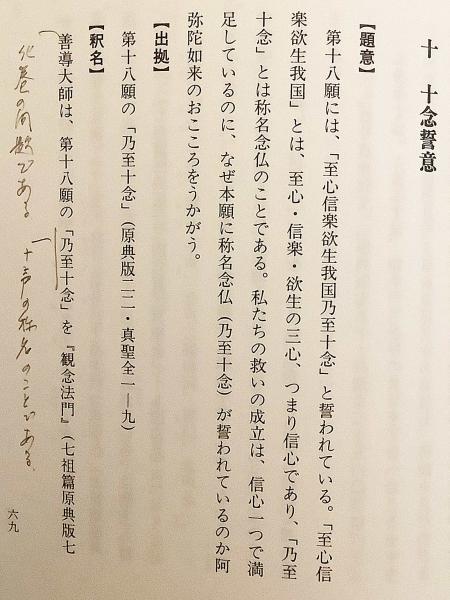 十　十念誓意
【題意】
第十八願には、「至心信楽欲生我国乃至十念」と誓われている。「至心信
楽欲生我国」とは、至心・信楽・欲生の三心、つまり信心であり、「乃至
十念」とは称名念仏のことである。私たちの救いの成立は、信心一つで満
足しているのに、なぜ本願に称名念仏（乃至十念）が誓われているのか阿
弥陀如来のおこころをうかがう。
【出拠】
第十八願の「乃至十念」（原典版二二・真聖全一―九）
【釈名】
善導大師は、第十八願の「乃至十念」を『観念法門』（七祖篇原典版七
化巻の問題である　十声の称名のことである。
六九